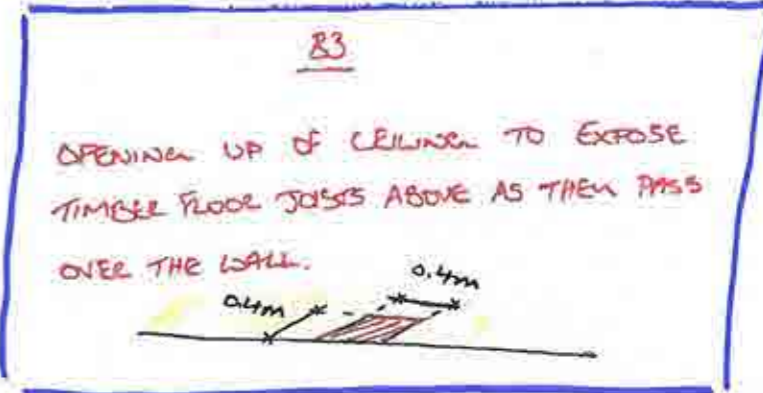 B3
OPENING UP OF CEILING TO EXPOSE
TIMBER FLOOR JOISTS ABOVE AS THEY PASS
OVER THE WALL.
0.4m
0.4m